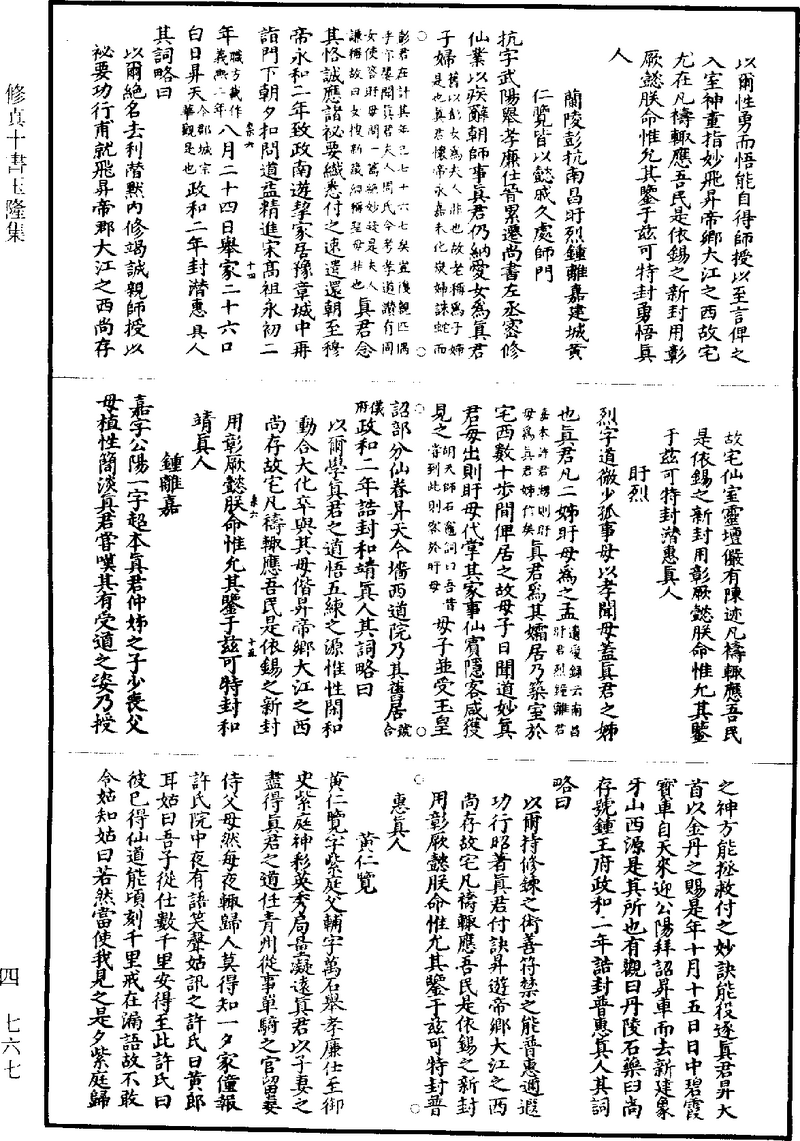 以爾性勇而悟能自得師授以至言俾之
入室神童指妙飛昇帝鄉大江之西故宅
尤在凡禱輙應吾民是依錫之新封用彰
厥懿朕命惟允其鑒于兹可特封勇悟真
人
蘭陵彭抗南昌盱烈鍾離嘉建城黄
仁覽皆以懿戚久處師門
抗字武陽舉孝廉仕晉累遷尚書左丞密修
仙業以疾辭朝師事真君仍納愛女爲真君
子婦舊以彭女爲夫人非也故老稱爲子婦是也真君懷帝永嘉末化炭婦誅蛇而
彭君在計其年已七十六矣豈復親匹偶
真君念
其恪誠應諸祕要纖悉付之速遣還朝至穆
帝永和二年致政南遊挈家居豫章城中再
詣門下朝夕扣問道益精進宋髙祖永初二
年職方載作義熙二年八月二十四日舉家二十六口
白日昇天今郡城宗華觀是也政和二年封潜惠真人
其詞略曰
以爾絶名去利潜黙内修竭誠親師授以
祕要功行甫就飛昇帝郡大江之西尚存
故宅仙室靈壇儼有陳迹凡禱輙應吾民
是依錫之新封用彰厥懿朕命惟允其鑒
于兹可特封潜惠真人
盱烈
烈字道微少孤事母以孝聞母蓋真君之姊
也真君凡二姊盱母爲之孟
真君爲其孀居乃築室於
宅西數十歩間俾居之故母子日聞道妙真
君每出則盱母代掌其家事仙賓隱客咸獲
見之
母子並受玉皇
詔部分仙眷昇天今墻西道院乃其舊居號合僊府
政和二年誥封和靖真人其詞略曰
以爾學真君之道悟五練之源惟性閑和
動合大化卒與其母偕昇帝鄉大江之西
尚存故宅凡禱輙應吾民是依錫之新封
用彰厥懿朕命惟允其鑒于兹可特封和
靖真人
鍾離嘉
嘉字公陽一字超本真君仲姊之子少喪父
母植性簡淡真君嘗嘆其有受道之姿乃授
之神方能拯救付之妙訣能役逐真君昇天
首以金丹之賜是年十月十五日日中碧霞
寳車自天來迎公陽拜詔昇車而去新建象
牙山西源是其所也有觀曰丹陵石藥臼尚
存號鍾王府政和二年誥封普惠真人其詞
略曰
以爾持修錬之術善符禁之能普惠邇遐
功行昭著真君付訣昇遊帝鄉大江之西
尚存故宅凡禱輙應吾民是依錫之新封
用彰厥懿朕命惟允其鑒于兹可特封普
惠真人
黄仁覽
黄仁覽字紫庭父輔字萬石舉孝廉仕至御
史紫庭神彩英秀局量凝遠真君以子妻之
盡得真君之道任青州從事單騎之官留妻
侍父母然每夜輙歸人莫得知一夕家僮報
許氏院中夜有語笑聲姑訊之許氏曰黄郎
耳姑曰吾子從仕數千里安得至此許氏曰
彼已得仙道能頃刻千里戒在漏語故不敢
令姑知姑曰若然當使我見之是夕紫庭歸
修真十書玉隆集
四 七六七